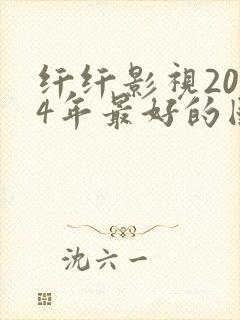 纤纤影视20
4年最好的
沈六一